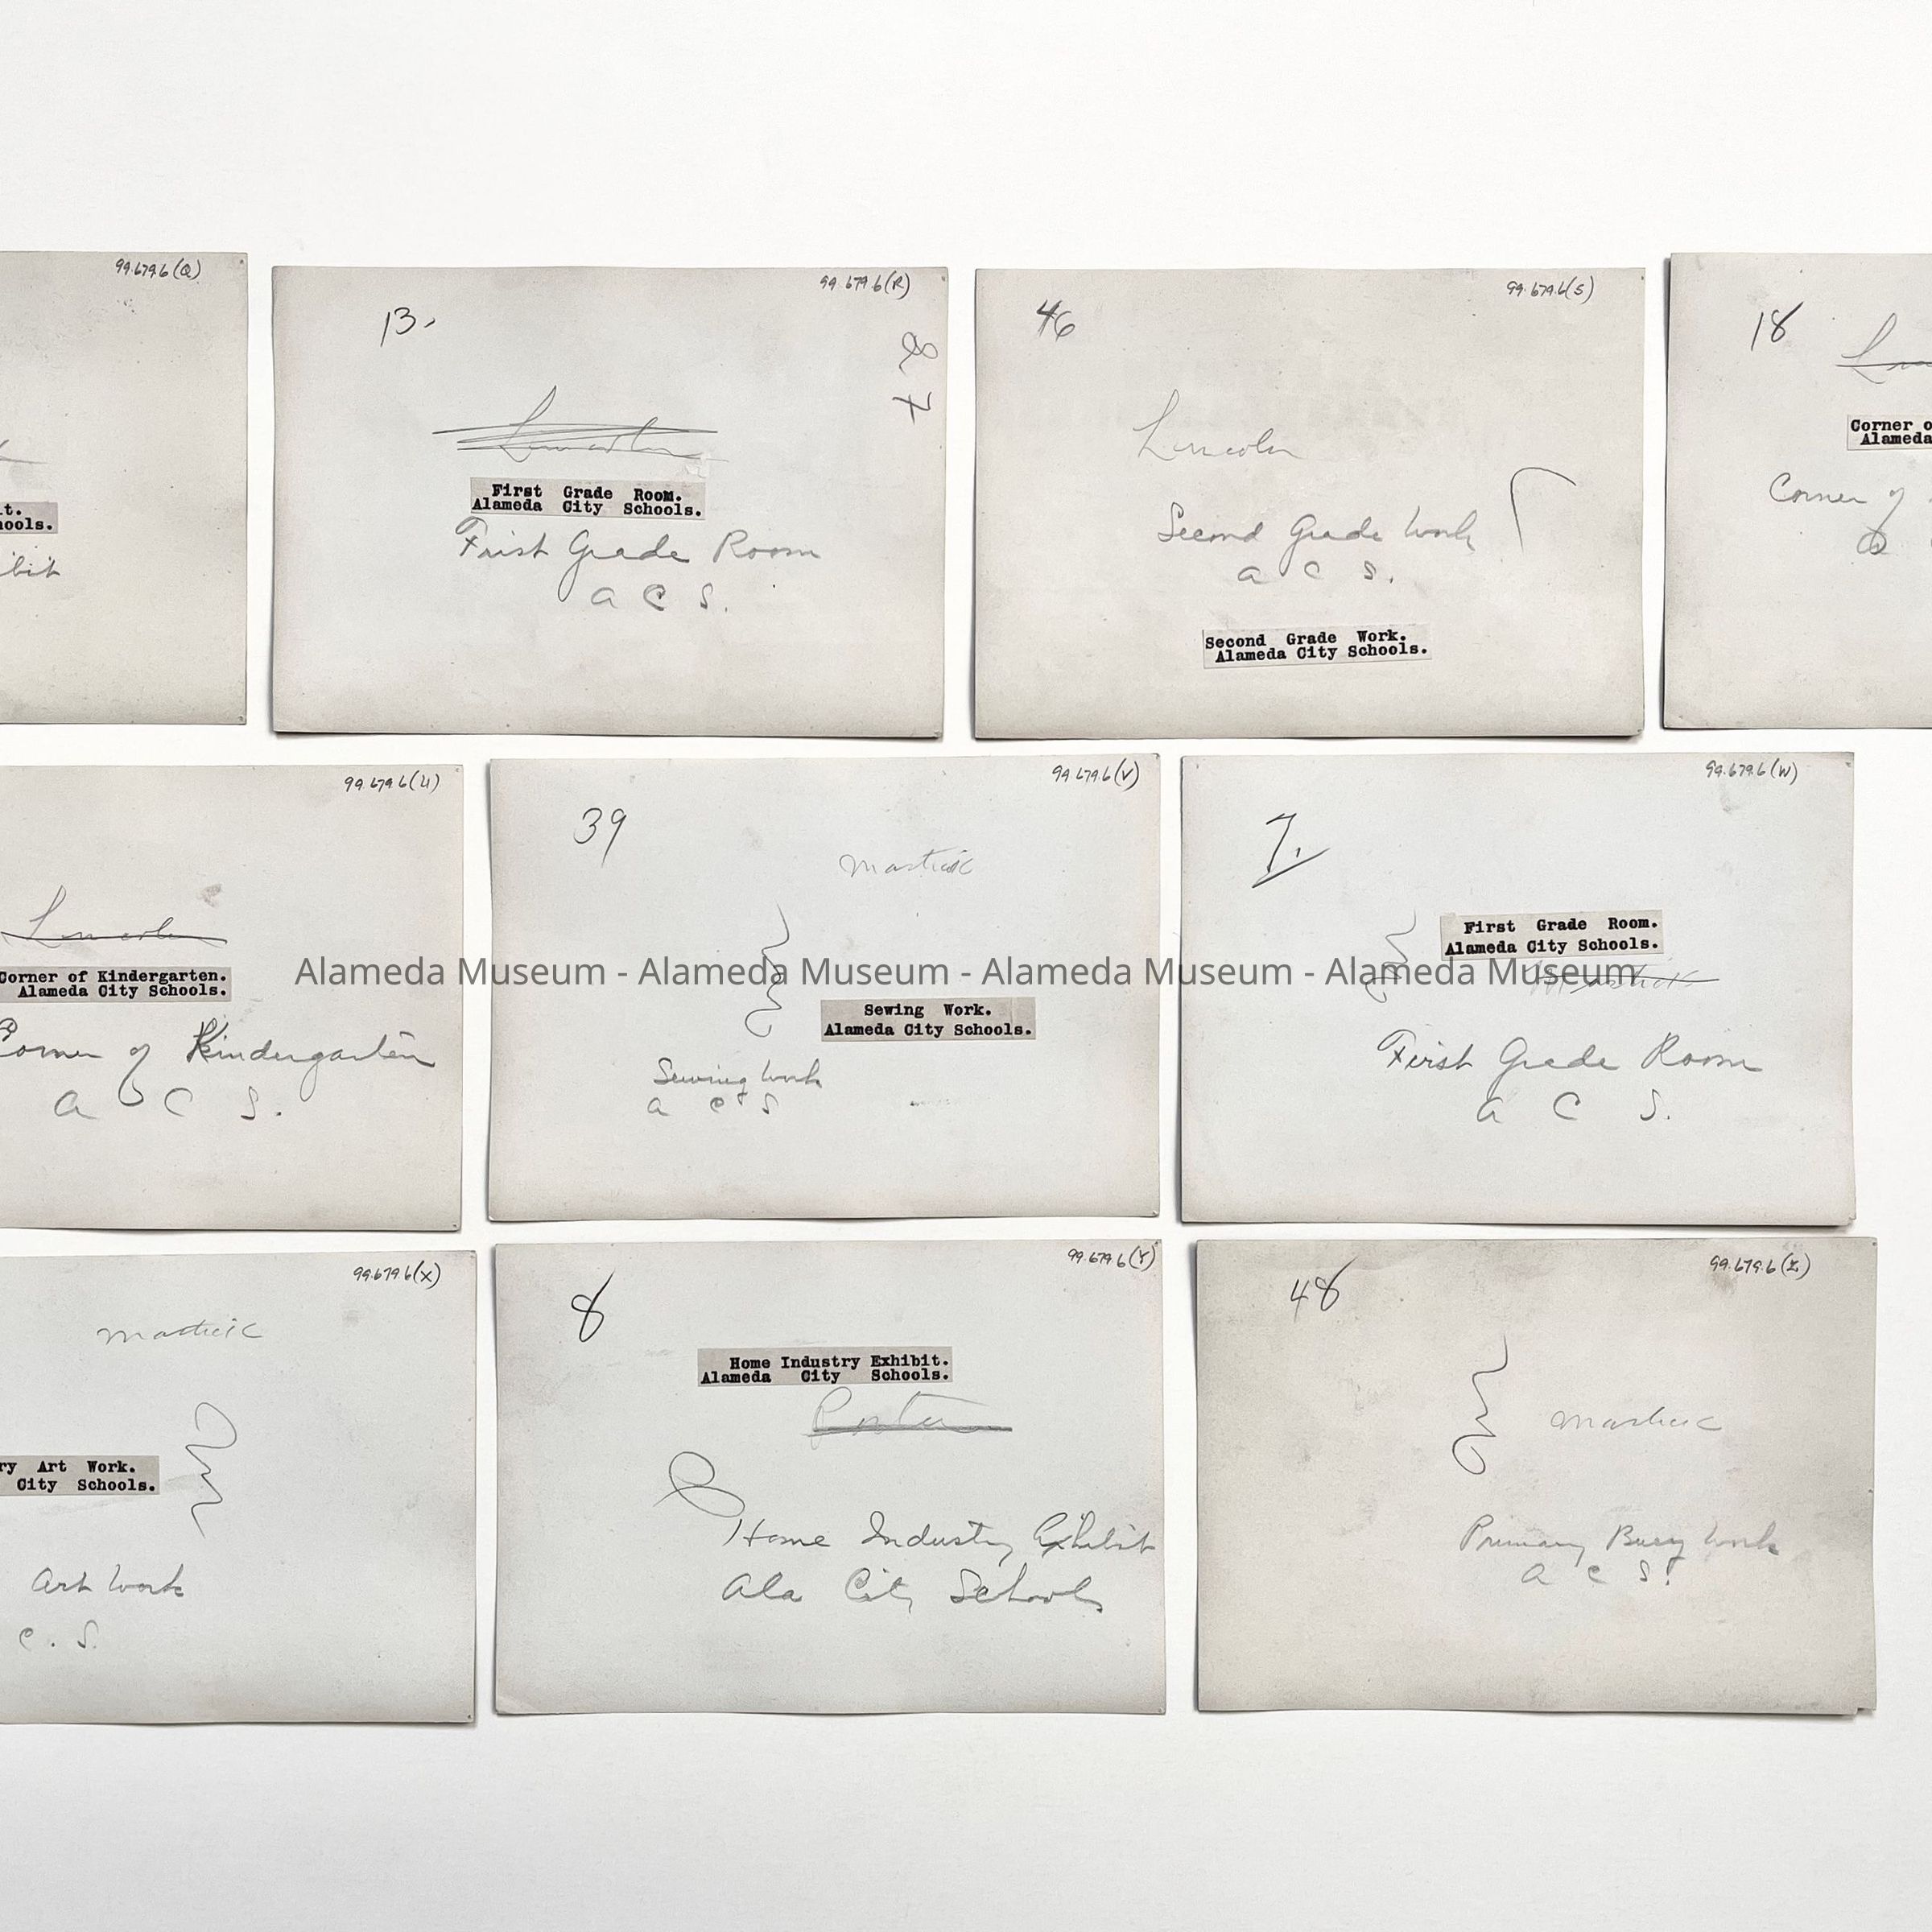 99.679.6(Q)
t.
hools.
ibit
99.679.6(R)
13.
Lincoln
First Grade Room.
Alameda City Schools.
First Grade Room
A C S.
99.679.6(S)
46
Lincoln
Second Grade Work
A C S.
Second Grade Work.
Alameda City Schools.
18
Corner o
Alameda
Corner of
99.679.6(U)
Lincoln
Corner of Kindergarten.
Alameda City Schools.
Corner of Kindergarten
A C S.
99.679.6(V)
39
Mastick
Sewing Work.
Alameda City Schools.
Sewing Work
A C S
99.679.6(W)
7.
First Grade Room.
Alameda City Schools.
Mastick
First Grade Room
A C S.
Alameda Museum - Alameda Museum - Alameda Museum - Alameda Museum
99.679.6(X)
Mastick
ry Art Work.
City Schools.
Art Work
C. S.
99.679.6(Y)
8
Home Industry Exhibit.
Alameda City Schools.
Porter
Home Industry Exhibit
Ala City Schools
99.679.6(Z)
48
Mastick
Primary Busy Work
A C S.